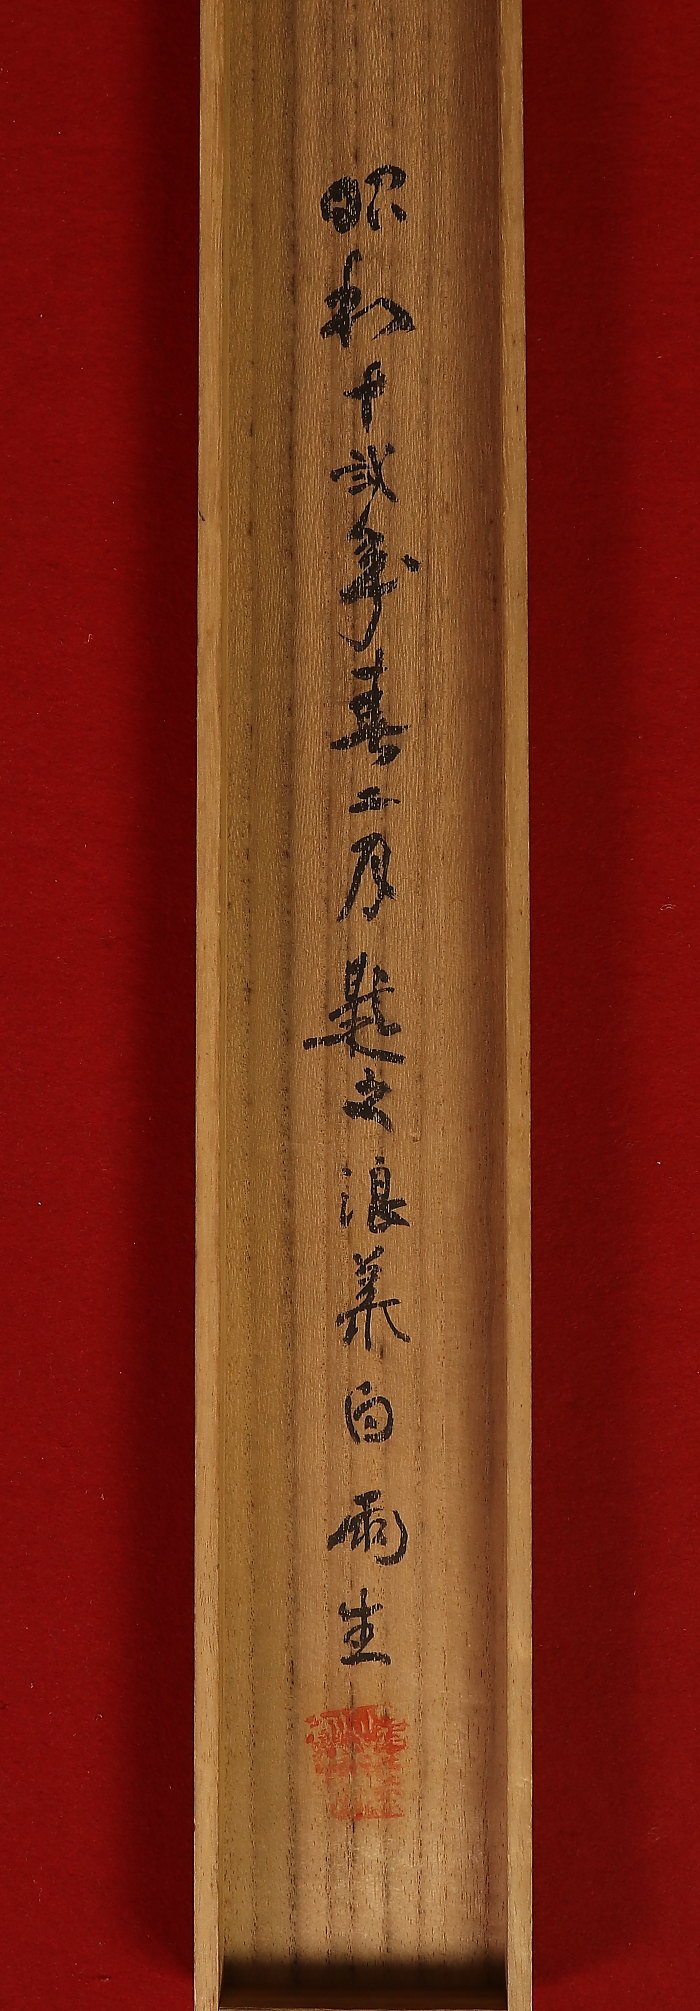 昭和十弍年春二月題之浪華白雨生